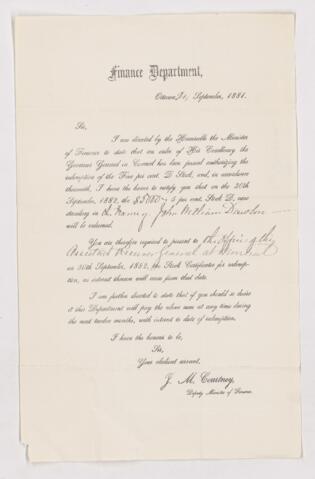 Finance Department,
Ottawa, 21, September, 1881.
Sir,
I am directed by the Honourable the Minister
of Finance to state that an order of His Excellency the
Governor General in Council has been passed authorizing the
redemption of the Five per cent. D Stock, and, in accordance
therewith, I have the honor to notify you that on the 30th
September, 1882, the $ 5 per cent. Stock D, now
standing in the name of John William Dawson
will be redeemed.
You are therefore required to present to the Office of the
Assistant Receiver General at Montreal
on 30th September, 1882, the Stock Certificates for redemp-
tion, as interest thereon will cease from that date.
I am further directed to state that if you should so desire
it this Department will pay the above sum at any time during
the next twelve months, with interest to date of redemption.
I have the honour to be,
Sir,
Your obedient servant,
J. M. Courtney,
Deputy Minister of Finance.